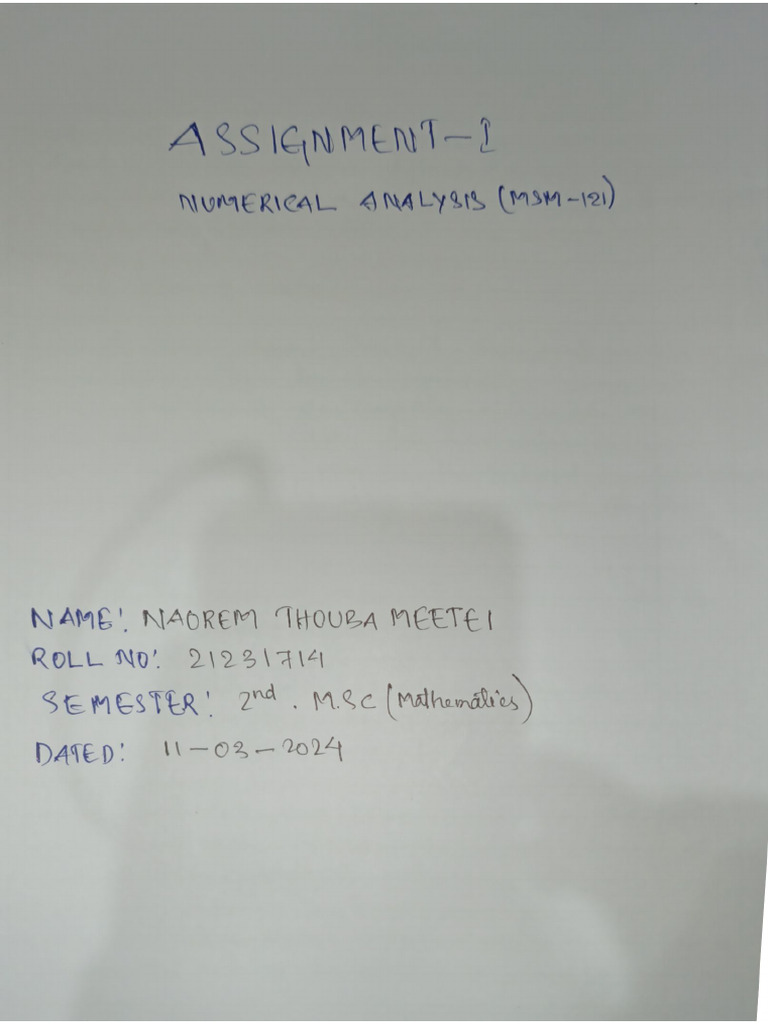 ASSIGNMENT-I
NUMERICAL ANALYSIS (MSM-121)
NAME: NAOREM THOUBA MEETEI
ROLL NO: 21231714
SEMESTER: 2nd. M.SC (Mathematics)
DATED: 11-03-2024